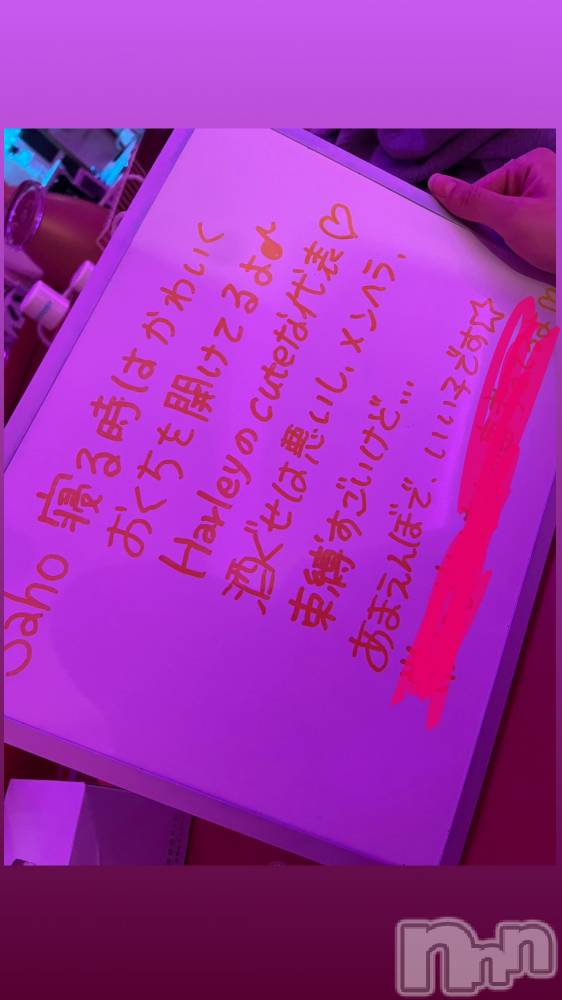 Saho 寝る時はかわいく
おくちを開けてるよ♪
Harleyのcuteな代表♡
酒ぐせは悪いし、メンヘラ、
束縛すごいけど…
あまえんぼで、いい子です☆
nnn